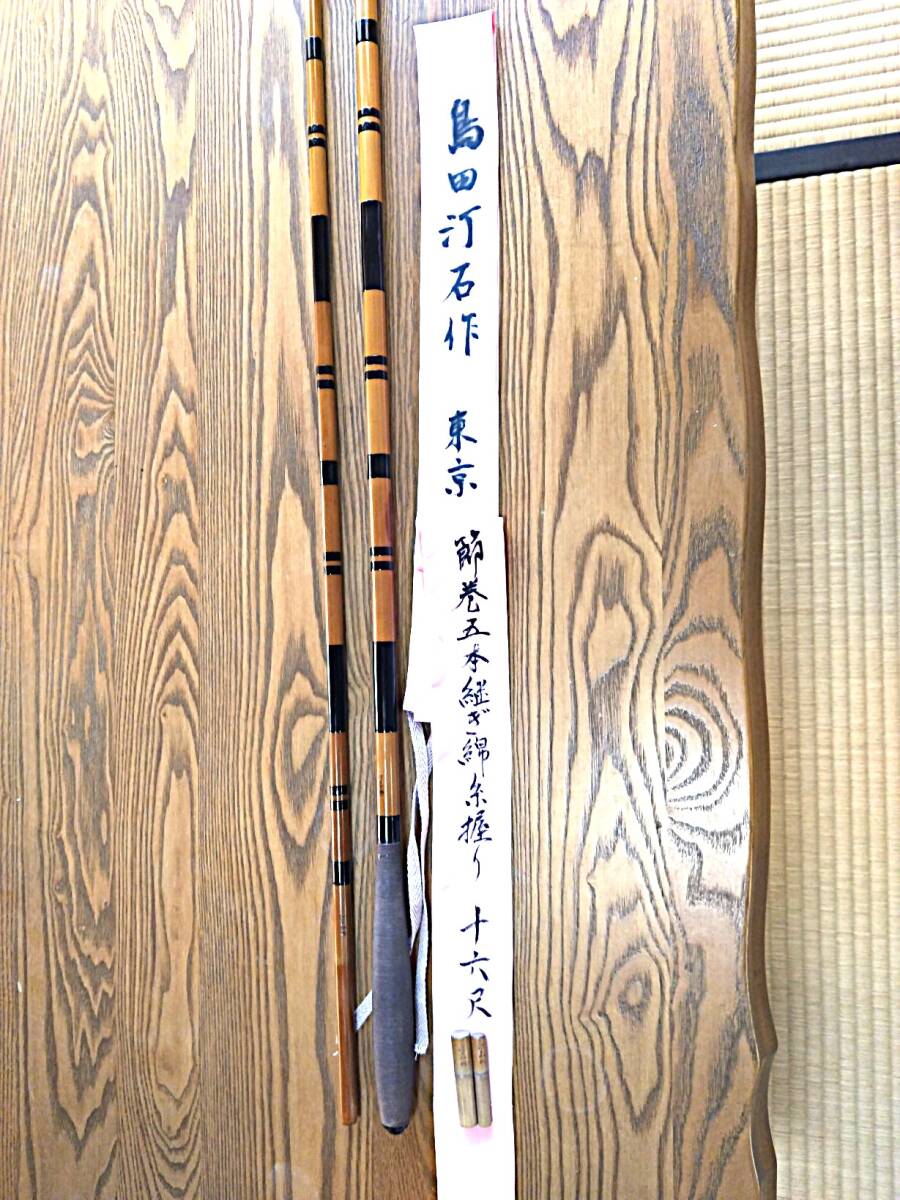 島田汀石作 東京
節巻五本継ぎ綿糸握り 十六尺